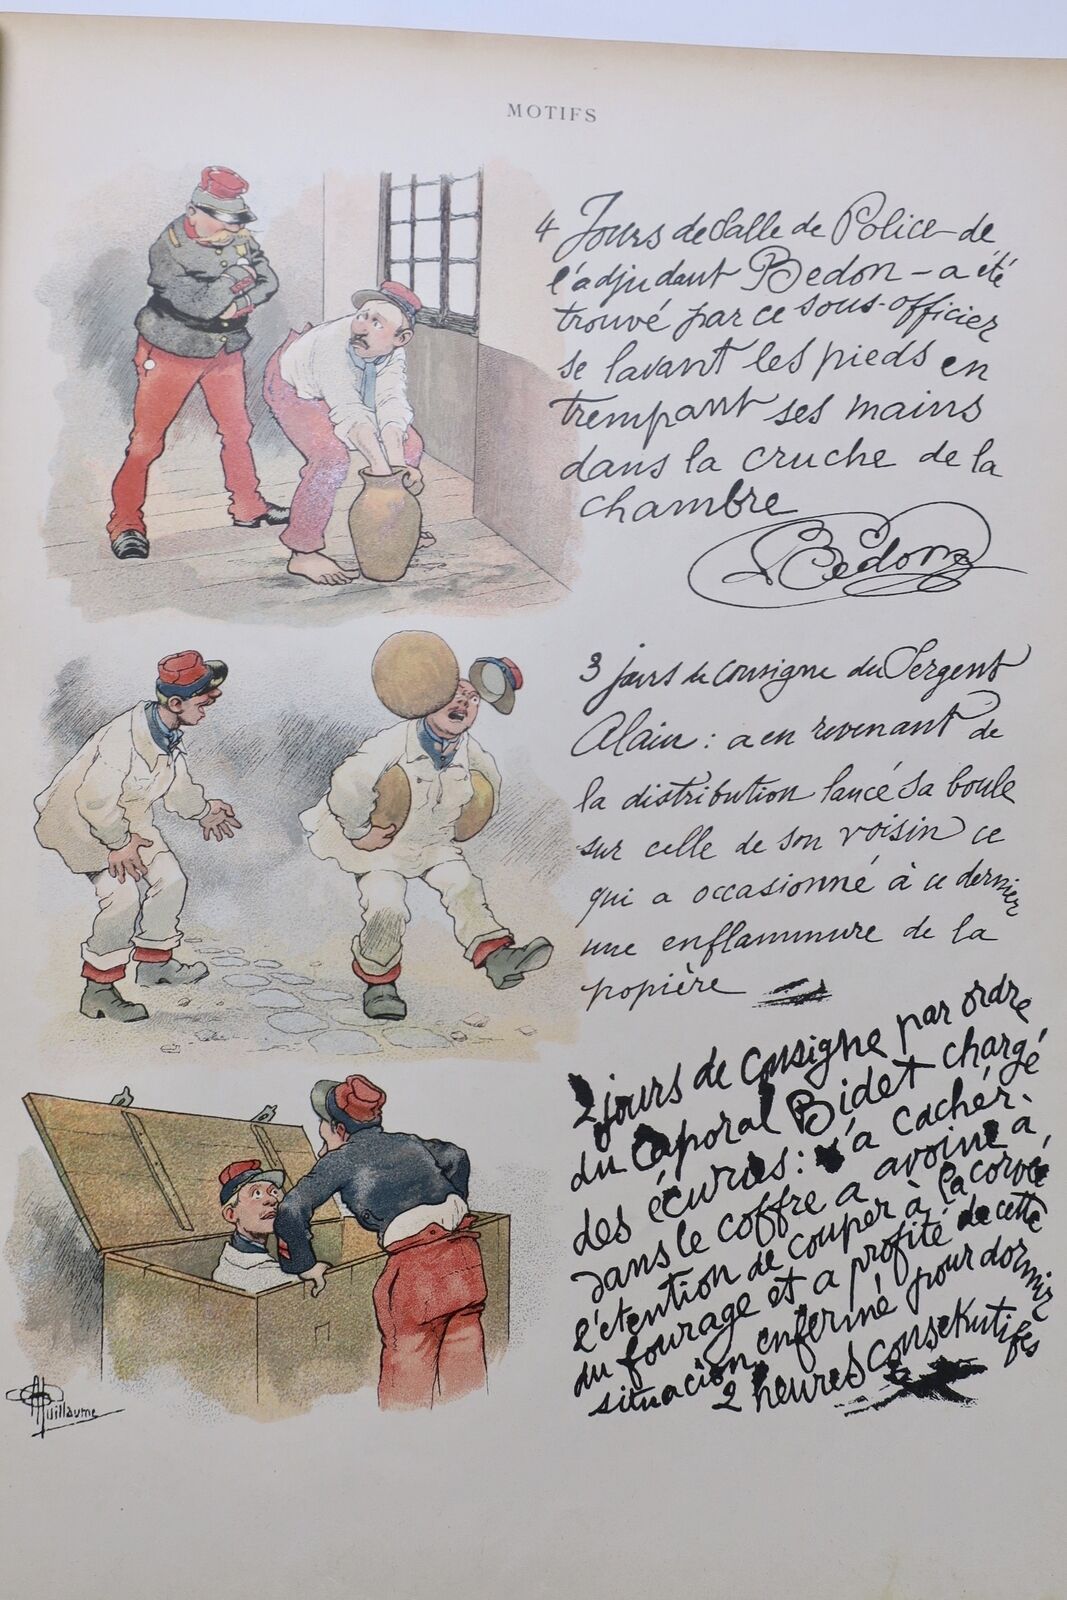 MOTIFS
4 Jours de Salle de Police de
l'adjudant Bedon - a été
trouvé par ce sous-officier
se lavant les pieds en
trempant ses mains
dans la cruche de la
chambre
Bedon
3 jours de consigne du Sergent
Alain : a en revenant de
la distribution lancé sa boule
sur celle de son voisin ce
qui a occasionné à ce dernier
une enflammure de la
popière
2 jours de consigne par ordre
du Caporal Bidet chargé
des écuries : s'a cachér
dans le coffre a avoine a
l'etention de couper à la corvée
du fourage et a profité de cette
situacion enfermé pour dormir
2 heures consekutifes
AGuillaume